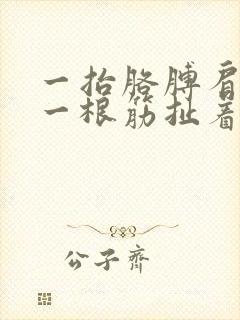 一抬胳膊肩
一根筋扯着
公子齐